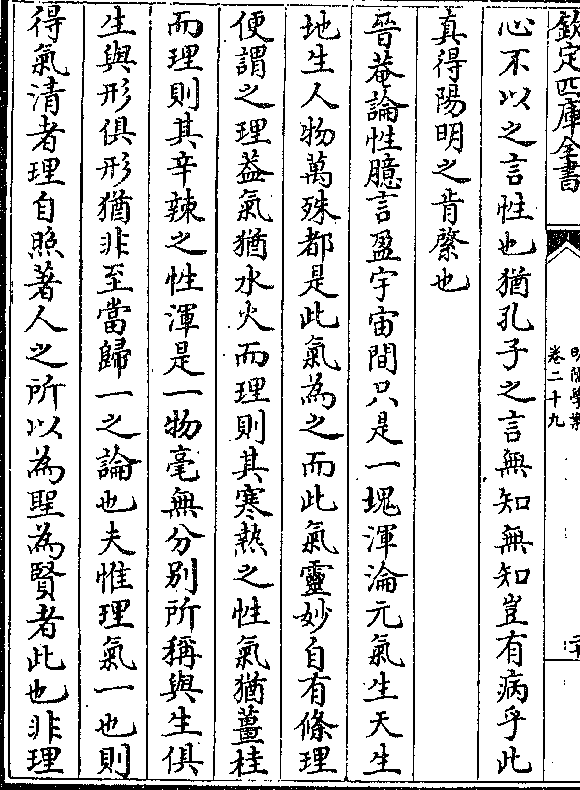 欽定四庫全書
明儒學案
卷二十九
心不以之言性也猶孔子之言無知無知豈有病乎此
真得陽明之肯綮也
晉菴論性臆言盈宇宙間只是一塊渾淪元氣生天生
地生人物萬殊都是此氣為之而此氣靈妙自有條理
便謂之理葢氣猶水火而理則其寒熱之性氣猶薑桂
而理則其辛辣之性渾是一物毫無分别所稱與生俱
生與形俱形猶非至當歸一之論也夫惟理氣一也則
得氣清者理自照著人之所以為聖為賢者此也非理